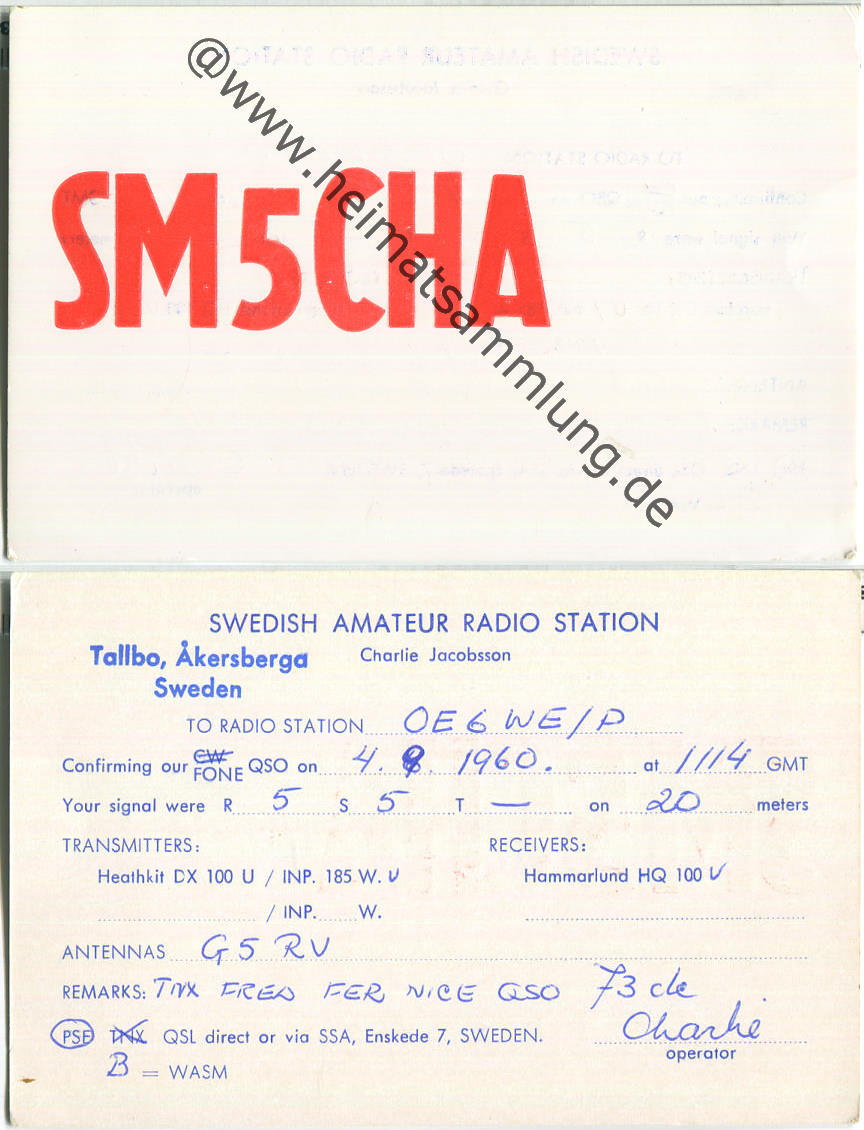 @www.heimatsammlung.de
SM5CHA
SWEDISH AMATEUR RADIO STATION
Tallbo, Åkersberga
Charlie Jacobsson
Sweden
TO RADIO STATION OE6WE/P
Confirming our CW FONE QSO on 4. 8. 1960. at 1114 GMT
Your signal were R 5 S 5 T — on 20 meters
TRANSMITTERS: RECEIVERS:
Heathkit DX 100 U / INP. 185 W. Hammarlund HQ 100
/ INP. W.
ANTENNAS G5RV
REMARKS: TNX FRED FER NICE QSO 73 de
PSE TNX QSL direct or via SSA, Enskede 7, SWEDEN. Charlie
operator
B = WASM